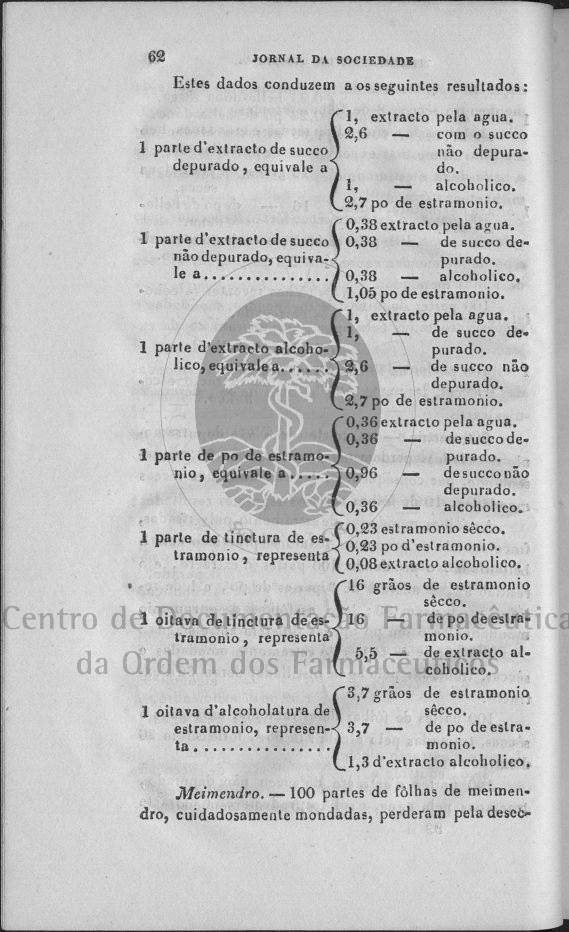 62 JORNAL DA SOCIEDADE
Estes dados conduzem a os seguintes resultados:
1 parte d'extracto de succo depurado, equivale a
1, extracto pela agua.
2,6 — com o succo
não depura-
do.
1, — alcoholico.
2,7 po de estramonio.
1 parte d'extracto de succo
não depurado, equiva-
le a...............
0,38 extracto pela agua.
0,38 — de succo de-
purado.
0,38 — alcoholico.
1,05 po de estramonio.
1 parte d'extracto alcoho-
lico, equivale a......
1, extracto pela agua.
1, — de succo de-
purado.
2,6 — de succo não
depurado.
2,7 po de estramonio.
1 parte de po de estramo-
nio, equivale a .....
0,36 extracto pela agua.
0,36 — de succo de-
purado.
0,96 — de succo não
depurado.
0,36 — alcoholico.
1 parte de tinctura de es-
tramonio, representa
0,23 estramonio sêcco.
0,23 po d'estramonio.
0,08 extracto alcoholico.
1 oitava de tinctura de es-
tramonio, representa
16 grãos de estramonio
sêcco.
16 — de po de estra-
monio.
5,5 — de extracto al-
coholico.
1 oitava d'alcoholatura de
estramonio, represen-
ta................
3,7 grãos de estramonio
sêcco.
3,7 — de po de estra-
monio.
1,3 d'extracto alcoholico.
Meimendro. — 100 partes de fôlhas de meimen-
dro, cuidadosamente mondadas, perderam pela desec-
Centro de Documentação Farmacêutica
da Ordem dos Farmacêuticos